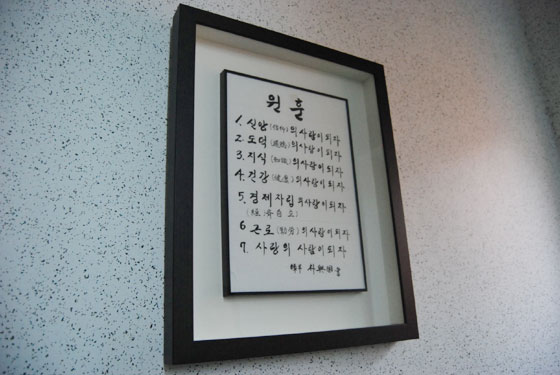 원훈
1. 신앙(信仰)의 사람이 되자
2. 도덕(道德)의 사람이 되자
3. 지식(知識)의 사람이 되자
4. 건강(健康)의 사람이 되자
5. 경제자립의 사람이 되자
(経済自立)
6 근로(勤労)의 사람이 되자
7. 사랑의 사람이 되자